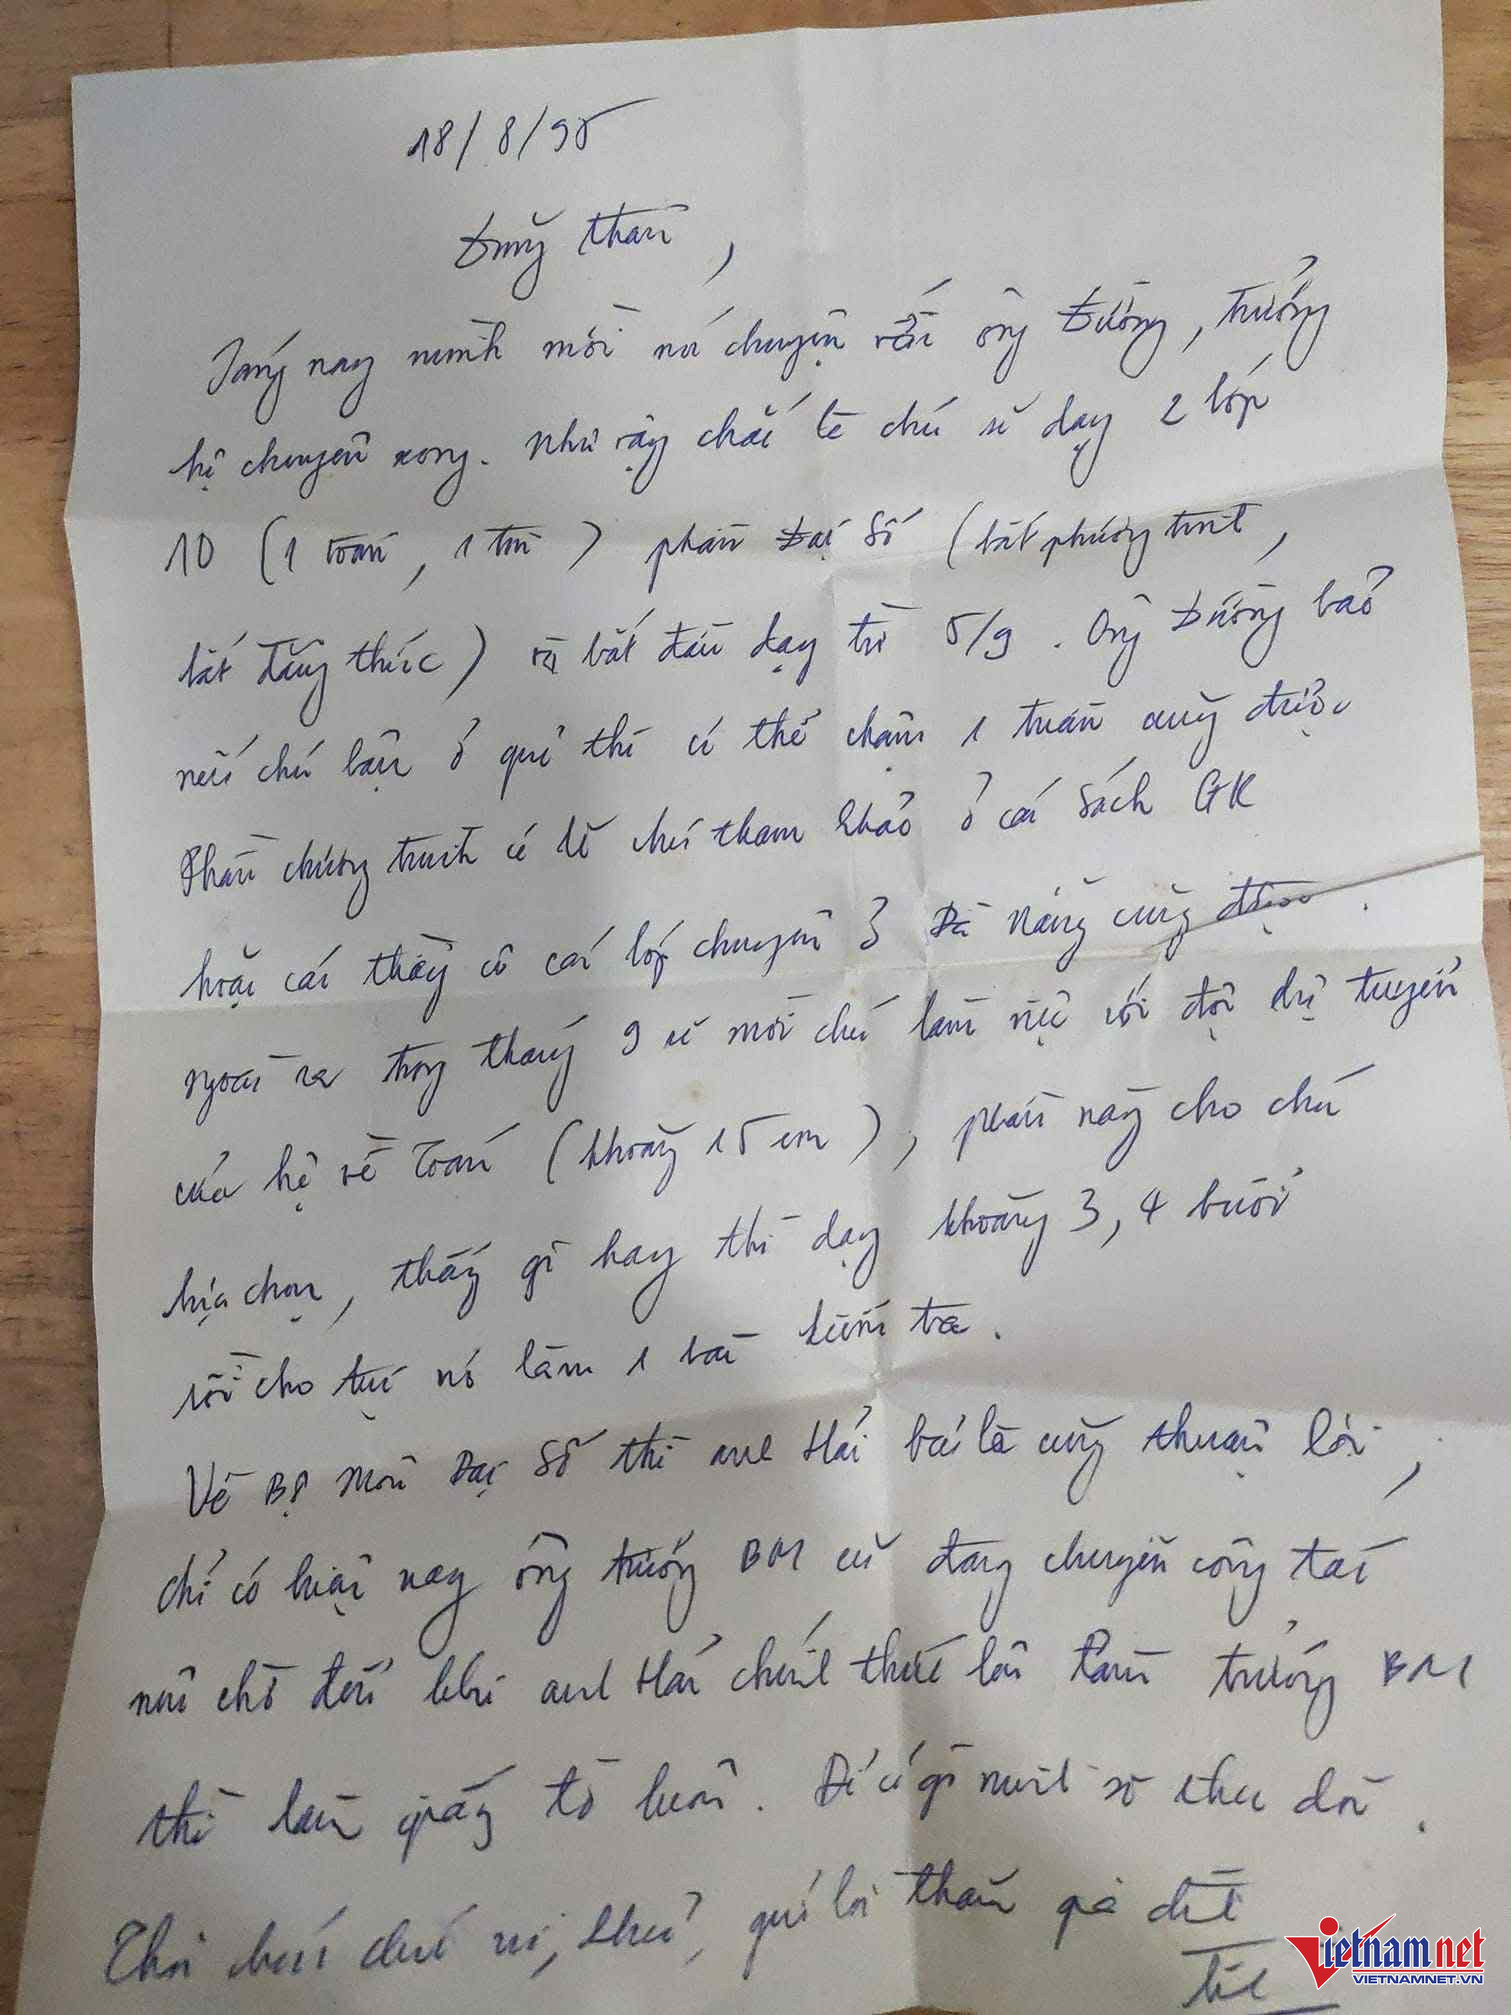 18/8/95
Dũng thân,
Sáng nay mình mới nói chuyện với ông Đường, trưởng
hệ chuyên xong. Như vậy chắc là chú sẽ dạy 2 lớp
10 (1 toán, 1 tin) phần Đại Số (bất phương trình,
bất đẳng thức) và bắt đầu dạy từ 5/9. Ông Đường bảo
nếu chú bận ở quê thì có thể chậm 1 tuần cũng được
Phần chương trình có lẽ chú tham khảo ở các sách GK
hoặc các thầy cô các lớp chuyên ở Đà Nẵng cũng được.
Ngoài ra trong tháng 9 sẽ mời chú làm việc với đội dự tuyển
của hệ về Toán (khoảng 15 em), phần này cho chú
lựa chọn, thấy gì hay thì dạy khoảng 3, 4 buổi
rồi cho tụi nó làm 1 bài kiểm tra.
Về Bộ Môn Đại Số thì anh Hải bảo là cũng thuận lợi,
chỉ có hiện nay ông trưởng BM cũ đang chuyển công tác
nên chờ đến khi anh Hải chính thức lên làm trưởng BM
thì làm giấy tờ luôn. Có gì mình sẽ thư
Thôi chúc chú vui, khỏe, gửi lời thăm gia đình